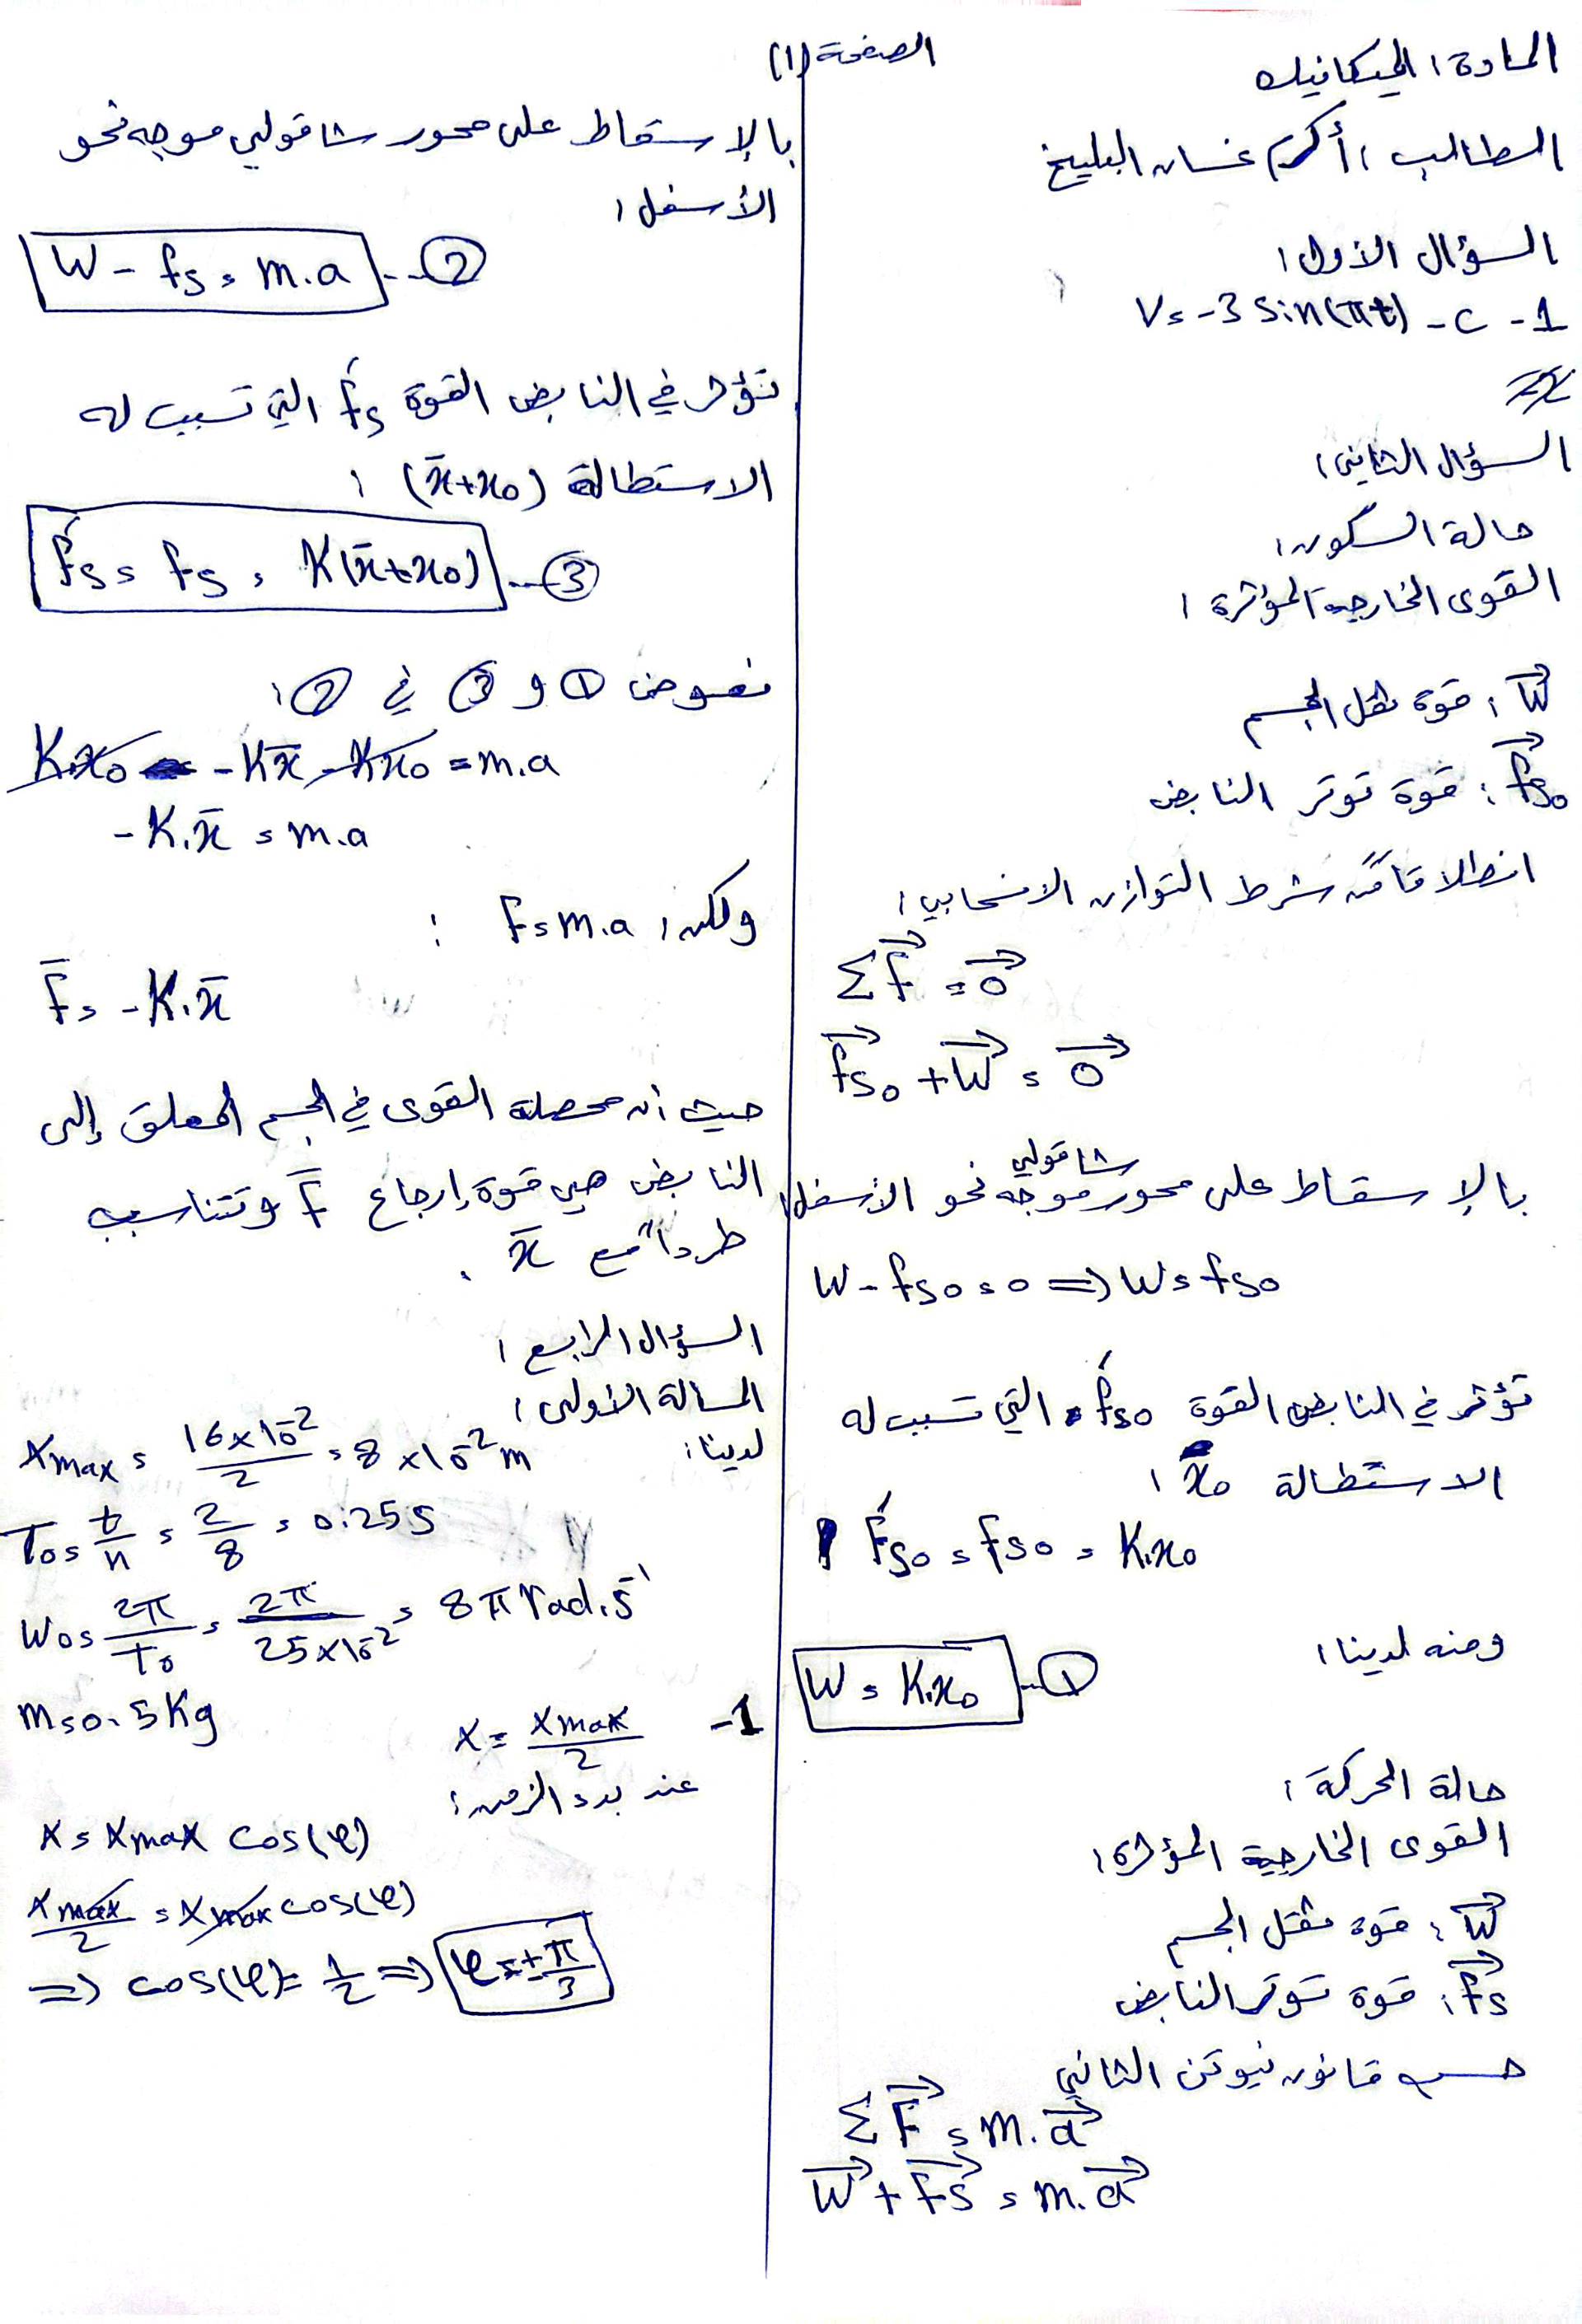 الصفحة (1)
المادة: الميكانيك
الطالب: أكرم غسان البليخ
السؤال الأول:
1 - c - V = -3 sin(πt)
السؤال الثاني:
حالة السكون:
القوى الخارجية المؤثرة:
W⃗: قوة ثقل الجسم
F⃗s₀: قوة توتر النابض
انطلاقاً من شرط التوازن الانسحابي:
ΣF⃗ = 0⃗
F⃗s₀ + W⃗ = 0⃗
بالإسقاط على محور شاقولي موجه نحو الأسفل:
W - Fs₀ = 0 ⇒ W = Fs₀
تؤثر في النابض القوة F́s₀ التي تسبب له
الاستطالة x₀:
F́s₀ = Fs₀ = K.x₀
ومنه لدينا:
W = K.x₀ ...①
حالة الحركة:
القوى الخارجية المؤثرة:
W⃗: قوة ثقل الجسم
F⃗s: قوة توتر النابض
حسب قانون نيوتن الثاني
ΣF⃗ = m.a⃗
W⃗ + F⃗s = m.a⃗
بالإسقاط على محور شاقولي موجه نحو
الأسفل:
W - Fs = m.a ...②
تؤثر في النابض القوة F́s التي تسبب له
الاستطالة (x̄+x₀):
F́s = Fs = K(x̄+x₀) ...③
نعوض ① و ③ في ②:
K.x₀ - Kx̄ - Kx₀ = m.a
-K.x̄ = m.a
ولكن: F = m.a:
F̄ = -K.x̄
حيث أن محصلة القوى في الجسم المعلق إلى
النابض هي قوة إرجاع F̄ وتتناسب
طرداً مع x̄.
السؤال الرابع:
المسألة الأولى:
لدينا:
Xmax = 16×10⁻²/2 = 8×10⁻² m
T₀ = t/n = 2/8 = 0.25 s
ω₀ = 2π/T₀ = 2π/25×10⁻² = 8π rad.s⁻¹
m = 0.5 Kg
1- X = Xmax/2
عند بدء الزمن:
X = Xmax cos(φ)
Xmax/2 = Xmax cos(φ)
⇒ cos(φ) = 1/2 ⇒ φ = ±π/3